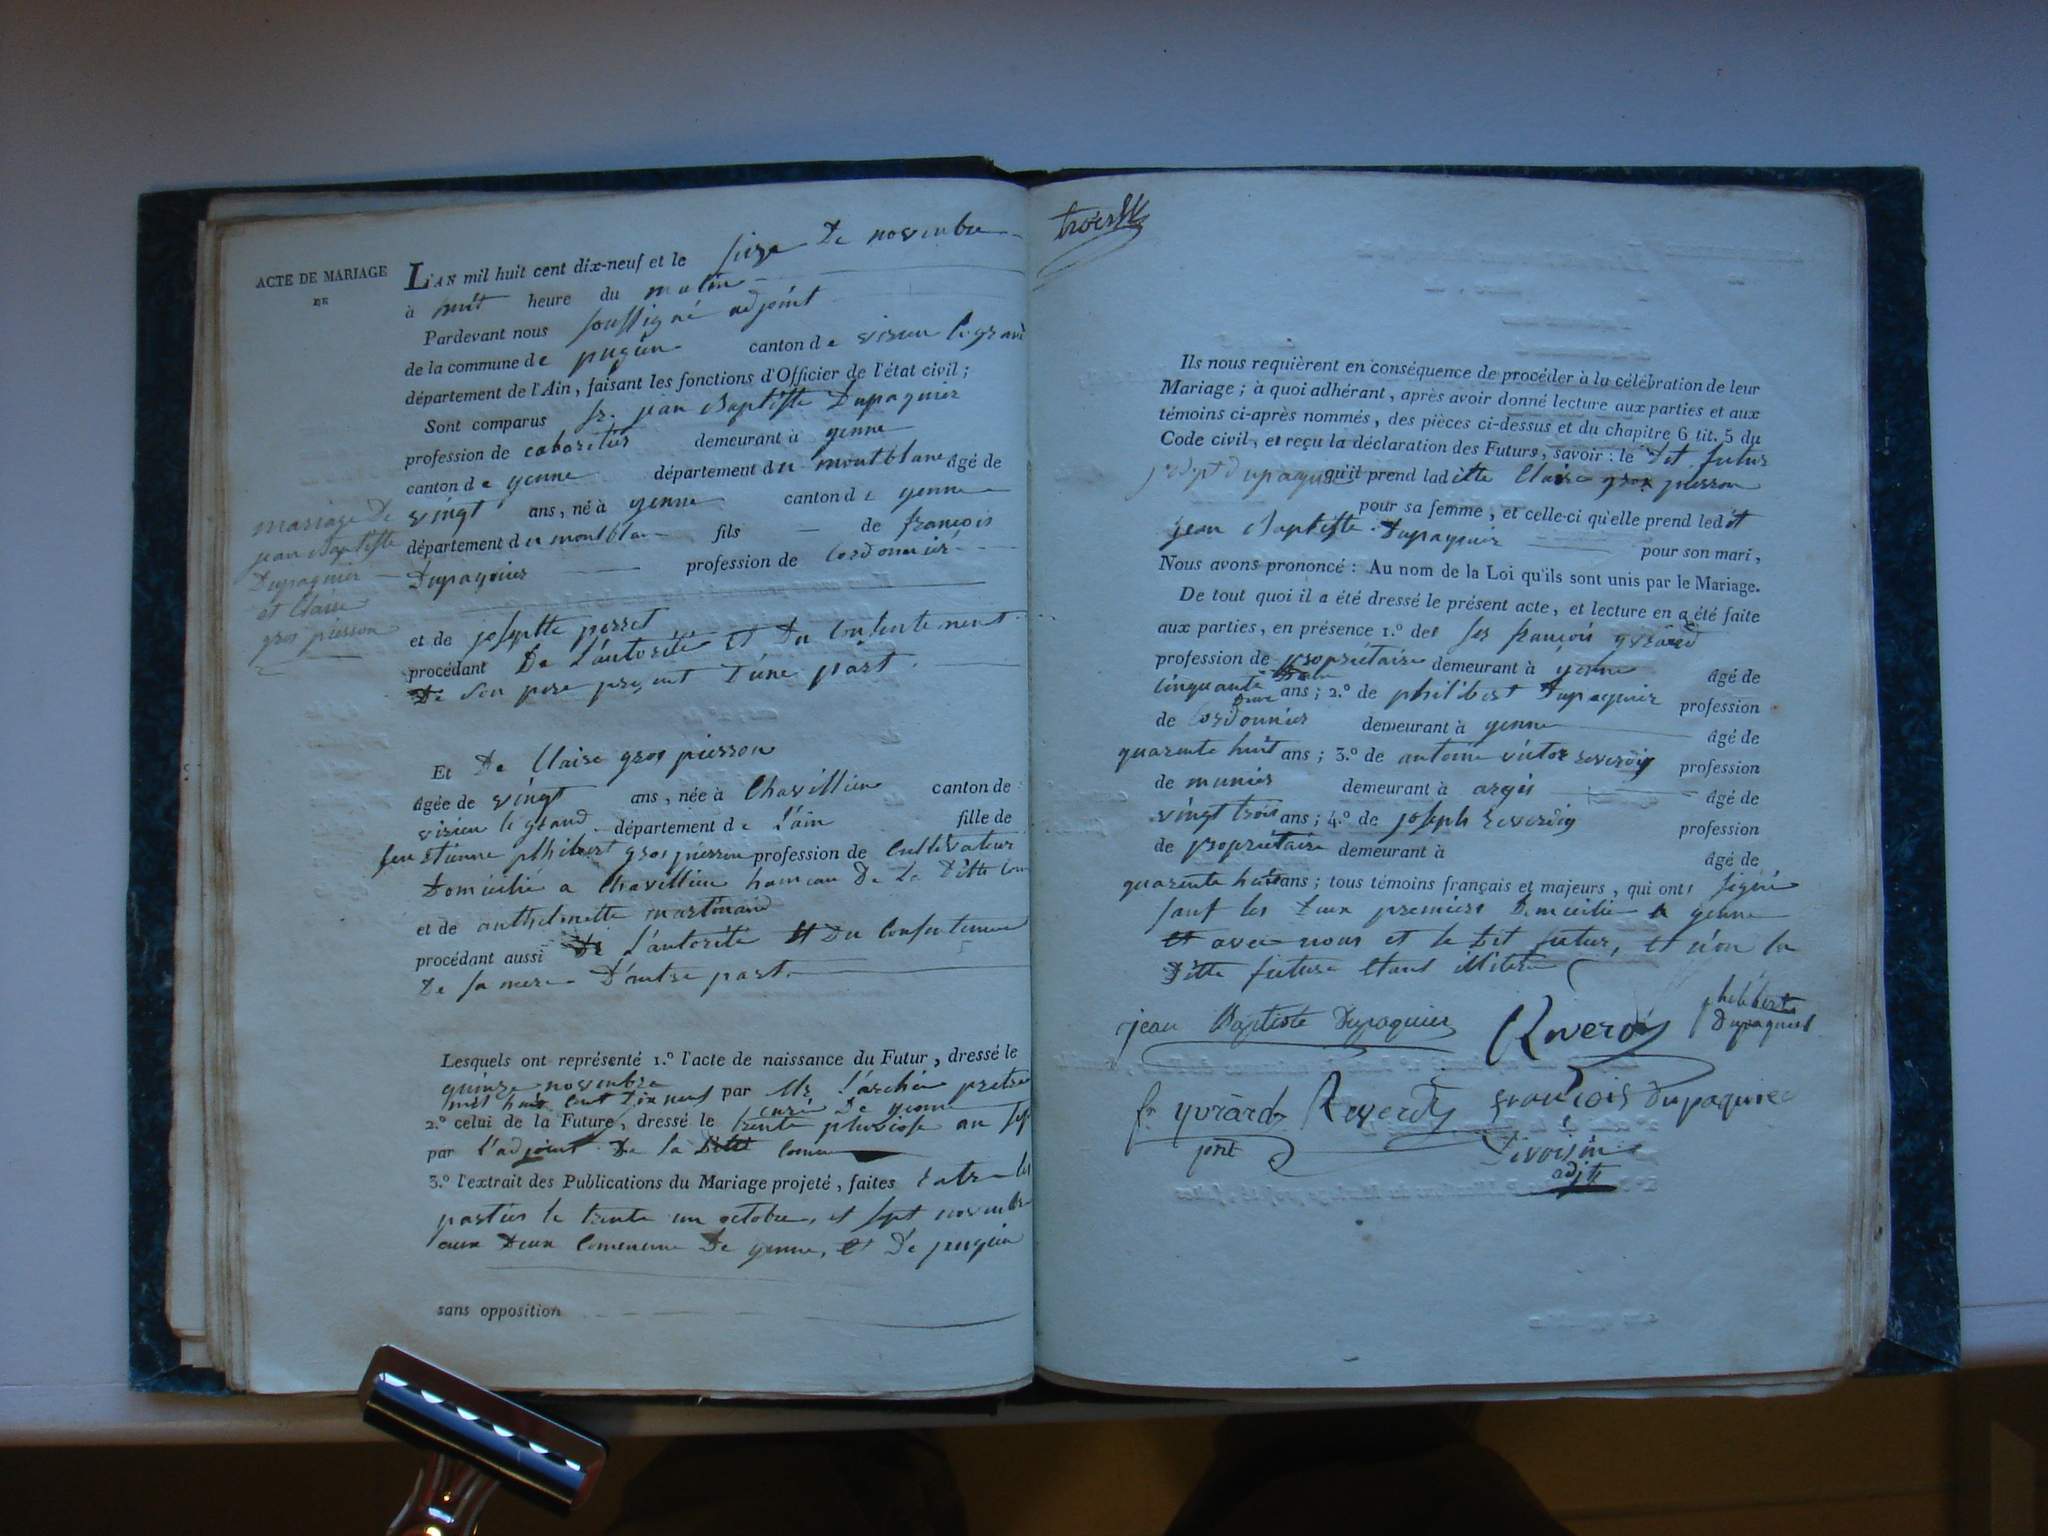 ACTE DE MARIAGE
DE
mariage de
jean Baptiste
Dupaquier
et Claire
gros pierron
L'AN mil huit cent dix-neuf et le seize de novembre
à huit heure du matin
Pardevant nous soussigné adjoint
de la commune de pugieu canton de virieu le grand
département de l'Ain, faisant les fonctions d'Officier de l'état civil;
Sont comparus sr. jean Baptiste Dupaquier
profession de cabaretier demeurant à yenne
canton de yenne département du montblanc âgé de
vingt ans, né à yenne canton de yenne
département du montblanc fils de françois
Dupaquier profession de Cordonnier
et de josephte perret
procédant De L'autorité et Du Consentement
De Son pere present D'une part.
Et De Claire gros pierron
âgée de vingt ans, née à Chavillieu canton de
virieu le grand département de L'ain fille de
feu etienne philibert gros pierron profession de Cultivateur
Domicilié a Chavillieu hameau De La Ditte Com
et de anthelmette martinand
procédant aussi De L'autorité et Du Consentement
De sa mere D'autre part.
Lesquels ont représenté 1.º l'acte de naissance du Futur, dressé le
quinze novembre
mil huit cent Dix neuf par Mr Larché pretre
curé De yenne
2.º celui de la Future, dressé le trente pluviose an sept
par L'adjoint De La Ditte Comune
3.º l'extrait des Publications du Mariage projeté, faites Entre les
parties le trente un octobre, et sept novembre
aux Deux Commune De yenne, et De pugieu
sans opposition
Ils nous requièrent en conséquence de procéder à la célébration de leur
Mariage; à quoi adhérant, après avoir donné lecture aux parties et aux
témoins ci-après nommés, des pièces ci-dessus et du chapitre 6 tit. 5 du
Code civil, et reçu la déclaration des Futurs, savoir: le Dit futur
Dupaquier qu'il prend laditte Claire gros pierron
pour sa femme, et celle-ci qu'elle prend ledit
jean Baptiste Dupaquier pour son mari,
Nous avons prononcé: Au nom de la Loi qu'ils sont unis par le Mariage.
De tout quoi il a été dressé le présent acte, et lecture en a été faite
aux parties, en présence 1.º de françois yvrard
profession de propriétaire demeurant à yenne âgé de
cinquante ans; 2.º de philibert Dupaquier profession
de Cordonnier demeurant à yenne âgé de
quarente huit ans; 3.º de antoine victor reverdy profession
de munier demeurant à argis âgé de
vingt trois ans; 4.º de joseph reverdy profession
de propriétaire demeurant à âgé de
quarente huit ans; tous témoins français et majeurs, qui ont signé
sauf les Deux premiers Domicilié a yenne
et avec nous et le Dit futur, et non la
Ditte future Etant illitere
jean Baptiste Dupaquier Reverdy philibert
Dupaquier
fr yvrard Reverdy françois Dupaquier